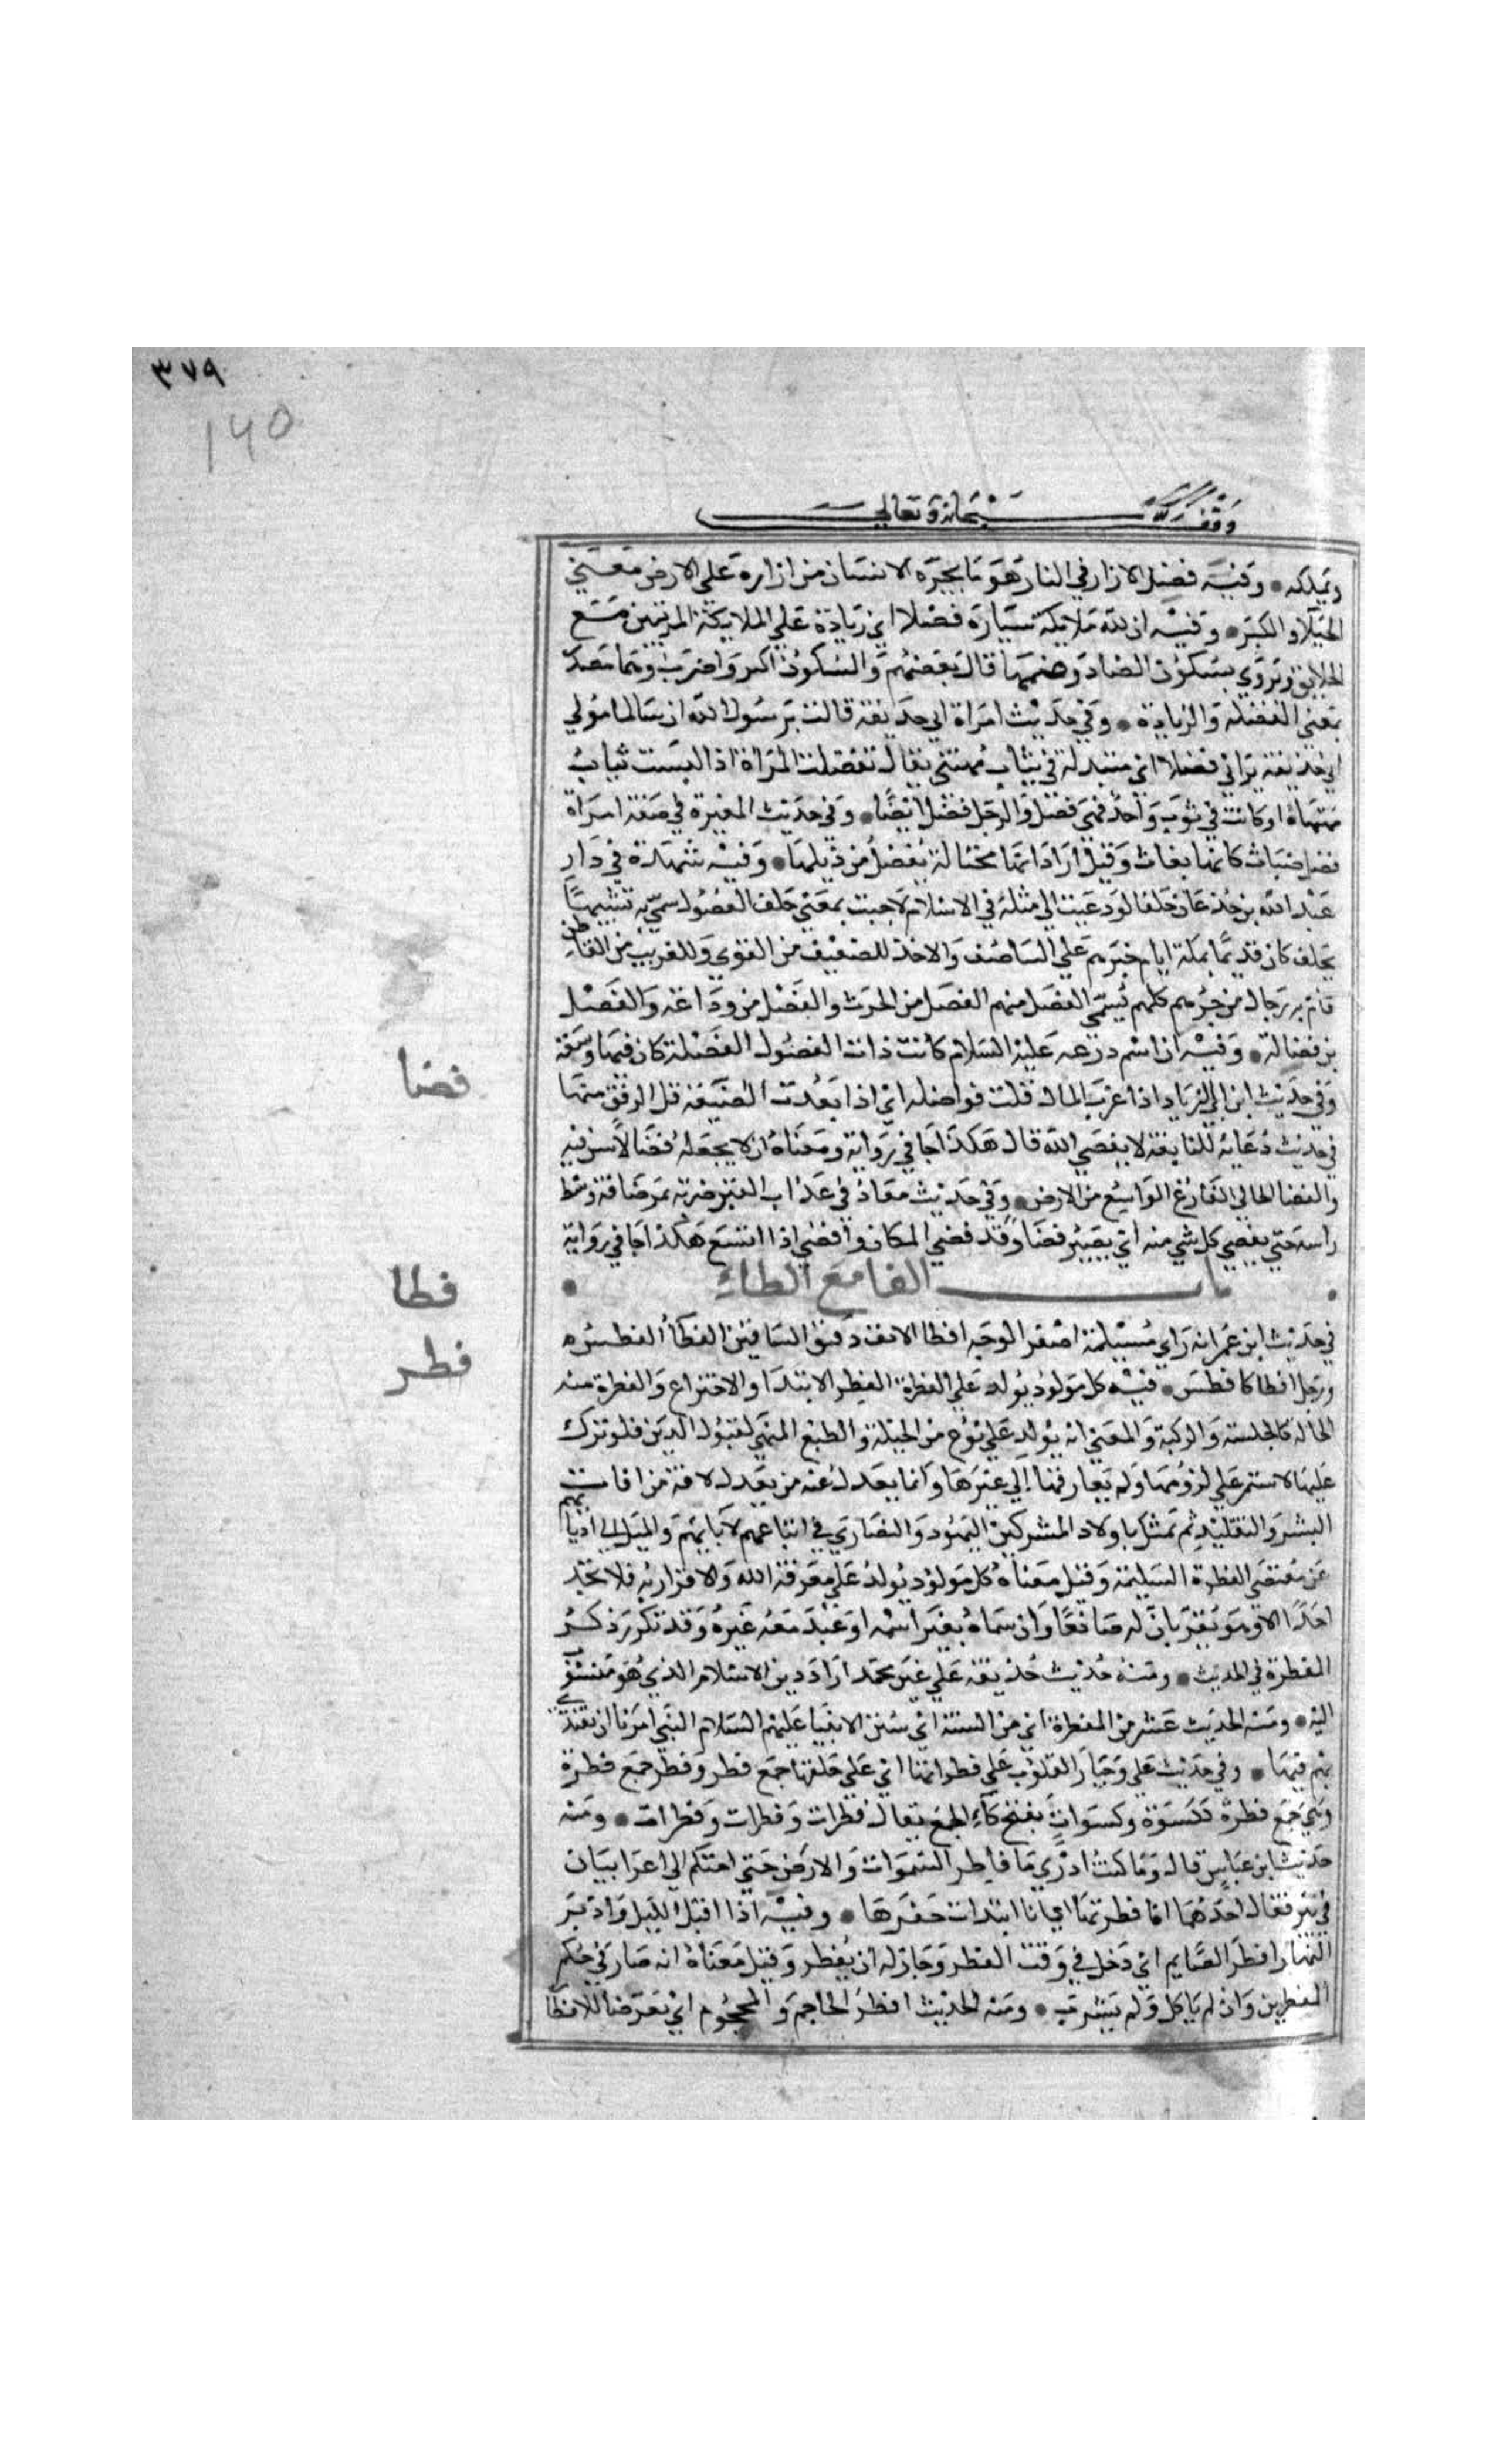 ٣٧٩
140
وقف لله سبحانه وتعالي
ويملكه • وفيه فضل الازار في النار هو ما يجره الانسان من ازاره علي الارض معني
الخيلا والكبر • وفيه ان لله ملايكة سيارة فضلا اي زيادة علي الملايكة المرتبين مع
الخلايق ويروي بسكون الضاد وضمها قال بعضهم والسكون اكبر واصوب وهما مصدر
بمعني الفضلة والزيادة • وفي حديث امراة ابي حذيفة قالت يرسول الله ان سالما مولي
ابي حذيفة يراني فضلا اي متبدلة في ثياب مهنتي يقال تفضلت المراة اذا لبست ثياب
مهنتها او كانت في ثوب واحد فهي فضل والرجل فضل ايضا • وفي حديث المغيرة في صفة امراة
فضل ضباث كانها بغاث وقيل اراد انها مختالة يفضل من ذيلها • وفيه شهدت في دار
عبد الله بن جدعان حلفا لو دعيت الي مثله في الاسلام لاجبت بمعني حلف الفضول سمي به تشبيها
بحلف كان قديما بمكة ايام جرهم علي التناصف والاخذ للضعيف من القوي وللغريب من القاطن
قام به رجال من جرهم كلهم يسمي الفضل منهم الفضل من الحرث والفضل من وداعة والفضل
بن فضالة • وفيه ان اسم درعه عليه السلام كانت ذات الفضول لفضلة كان فيها وسعة
وفي حديث ابن ابي الزياد اذا عزب المال قلت فواضله اي اذا بعدت الضيعة قل الرفق منها
فضا
في حديث دعايه للنابغة لا يفضي الله قال هكذا جا في رواية ومعناه ان لا يجعله فضا لا سن فيه
والفضا الخالي الفارغ الواسع من الارض • وفي حديث معاذ في عذاب القبر ضربه بمرضافة وسط
راسه حتي يفضي كل شي منه اي يصير فضا وقد فضي المكان وافضي اذا اتسع هكذا جا في رواية
باب الفا مع الطاء
فطا
في حديث ابن عمر انه راي مسيلمة اصفر الوجه افطا الانف دقيق الساقين الفطأ الفطسه
فطر
ورجل افطا كافطس • فيه كل مولود يولد علي الفطرة الفطر الابتدا والاختراع والفطرة منه
الحالة كالجلسة والركبة والمعني انه يولد علي نوع من الجبلة والطبع المتهي لقبول الدين فلو ترك
عليها لاستمر علي لزومها ولم يفارقها الي غيرها وانما يعدل عنه من يعدل لافة من افات
البشر والتقليد ثم تمثل باولاد المشركين اليهود والنصاري في اتباعهم لابايهم والميل الي اديانهم
عن مقتضي الفطرة السليمة وقيل معناه كل مولود يولد علي معرفة الله والاقرار به فلا تجد
احدا الا وهو يقر بان له صانعا وان سماه بغير اسمه او عبد معه غيره وقد تكرر ذكر
الفطرة في الحديث • ومنه حديث حذيفة علي غير محمد اراد دين الاسلام الذي هو منسوب
اليه • ومنه الحديث عشر من الفطرة اي من السنة اي سنن الانبيا عليهم السلام التي امرنا ان نقتدي
بهم فيها • وفي حديث علي وجبار القلوب علي فطراتها اي علي خلقها جمع فطر وفطر جمع فطرة
وهي جمع فطرة ككسوة وكسوات بفتح طآء الجمع يقال فطرات وفطرات وفطرات • ومنه
حديث ابن عباس قال وما كنت ادري ما فاطر السموات والارض حتي احتكم الي اعرابيان
في بئر فقال احدهما انا فطرتها اي انا ابتدات حفرها • وفيه اذا اقبل الليل وادبر
النهار افطر الصايم اي دخل في وقت الفطر وجاز له ان يفطر وقيل معناه انه صار في حكم
المفطرين وان لم ياكل ولم يشرب • ومنه الحديث افطر الحاجم والمحجوم اي تعرضا للافطار